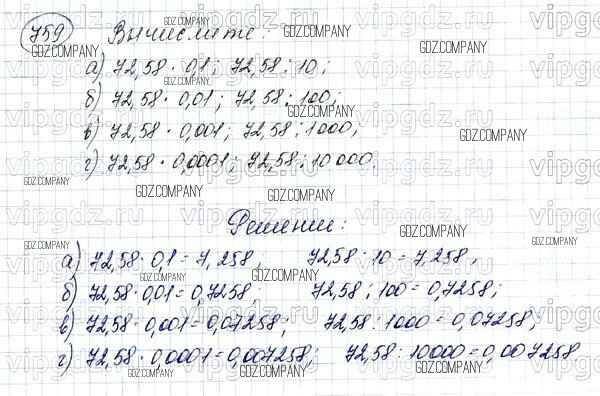 759 Вычислите:
а) 72,58 · 0,1; 72,58 : 10;
б) 72,58 · 0,01; 72,58 : 100;
в) 72,58 · 0,001; 72,58 : 1000;
г) 72,58 · 0,0001; 72,58 : 10000.
Решение:
а) 72,58 · 0,1 = 7,258, 72,58 : 10 = 7,258,
б) 72,58 · 0,01 = 0,7258, 72,58 : 100 = 0,7258;
в) 72,58 · 0,001 = 0,07258; 72,58 : 1000 = 0,07258;
г) 72,58 · 0,0001 = 0,007258; 72,58 : 10000 = 0,007258
vipgdz.ru
GDZ.COMPANY